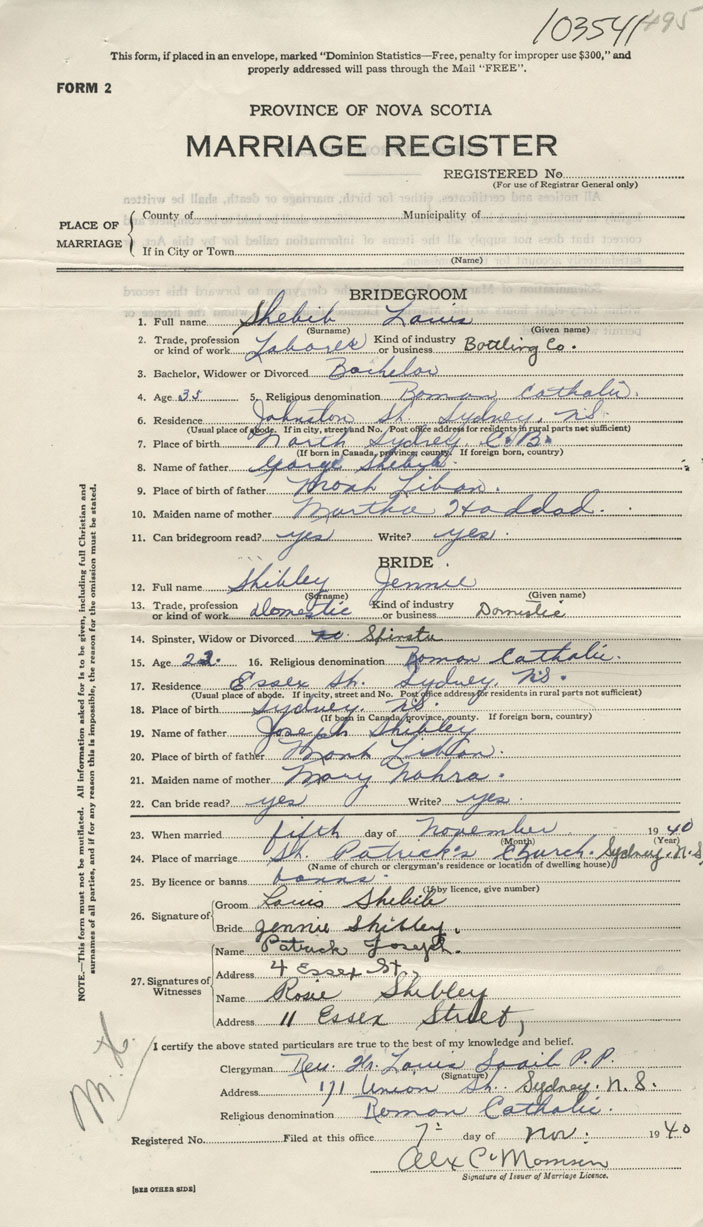 103541 495
This form, if placed in an envelope, marked "Dominion Statistics—Free, penalty for improper use $300," and
properly addressed will pass through the Mail "FREE".
FORM 2
PROVINCE OF NOVA SCOTIA
MARRIAGE REGISTER
REGISTERED No
(For use of Registrar General only)
PLACE OF MARRIAGE
County of Municipality of
If in City or Town
(Name)
BRIDEGROOM
1. Full name Shebib Louis
(Surname) (Given name)
2. Trade, profession or kind of work Laborer Kind of industry or business Bottling Co.
3. Bachelor, Widower or Divorced Bachelor
4. Age 35 5. Religious denomination Roman Catholic.
6. Residence Johnston St. Sydney, N.S.
(Usual place of abode. If in city, street and No. Post office address for residents in rural parts not sufficient)
7. Place of birth North Sydney, C.B.
(If born in Canada, province, county. If foreign born, country)
8. Name of father George Shebib.
9. Place of birth of father
10. Maiden name of mother Martha Haddad.
11. Can bridegroom read? yes Write? yes.
BRIDE
12. Full name Shibley Jennie
(Surname) (Given name)
13. Trade, profession or kind of work domestic Kind of industry or business Domestic
14. Spinster, Widow or Divorced Spinster
15. Age 22. 16. Religious denomination Roman Catholic.
17. Residence Essex St. Sydney, N.S.
(Usual place of abode. If in city, street and No. Post office address for residents in rural parts not sufficient)
18. Place of birth Sydney. N.S.
(If born in Canada, province, county. If foreign born, country)
19. Name of father Joseph Shibley
20. Place of birth of father
21. Maiden name of mother Mary Nahra.
22. Can bride read? yes Write? yes.
23. When married fifth day of November 1940
(Month) (Year)
24. Place of marriage St. Patrick's Church. Sydney, N.S.
(Name of church or clergyman's residence or location of dwelling house)
25. By licence or banns banns.
(If by licence, give number)
26. Signature of
Groom Louis Shebib
Bride Jennie Shibley.
27. Signatures of Witnesses
Name Patrick Joseph.
Address 4 Essex St.
Name Rosie Shibley
Address 11 Essex Street,
I certify the above stated particulars are true to the best of my knowledge and belief.
Clergyman Rev. Louis P.P.
(Signature)
Address 171 Union St. Sydney. N.S.
Religious denomination Roman Catholic.
Registered No. Filed at this office 7 day of Nov. 1940
Alex
Signature of Issuer of Marriage Licence.
[SEE OTHER SIDE]
NOTE.—This form must not be mutilated. All information asked for is to be given, including full Christian and
surnames of all parties, and if for any reason this is impossible, the reason for the omission must be stated.